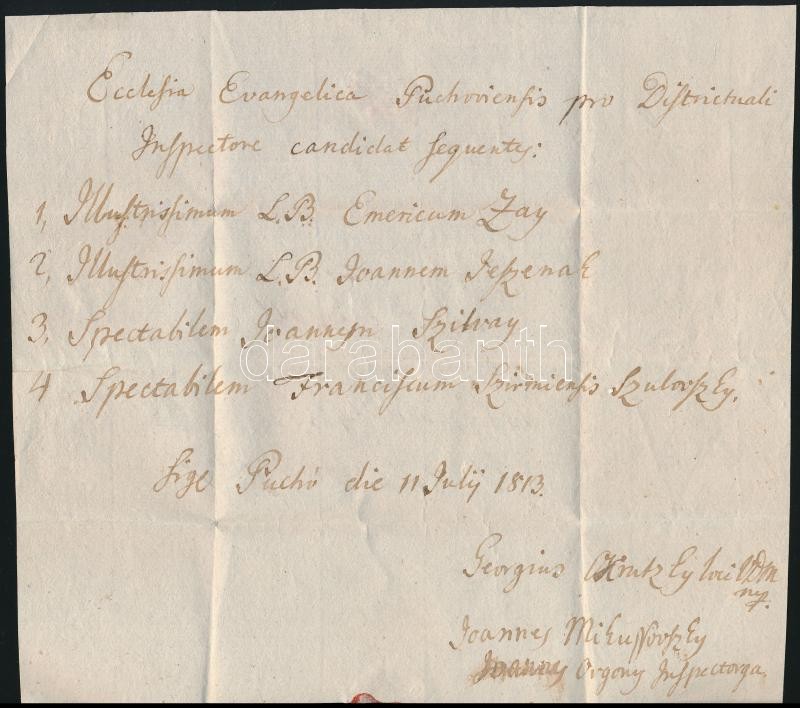 Ecclesia Evangelica Puchoviensis pro Districtuali
Inspectore candidat sequentes:
1, Illustrissimum L.B. Emericum Zay
2, Illustrissimum L.B. Joannem Jeszenak
3, Spectabilem Joannem Szilvay
darabanth
4 Spectabilem Franciscum Szirmiensis Szulovszky.
Sig. Puchó die 11 Julij 1813.
Georgius loci VDM
mp.
Joannes Mikussovszky
Joannes Orgony Inspector